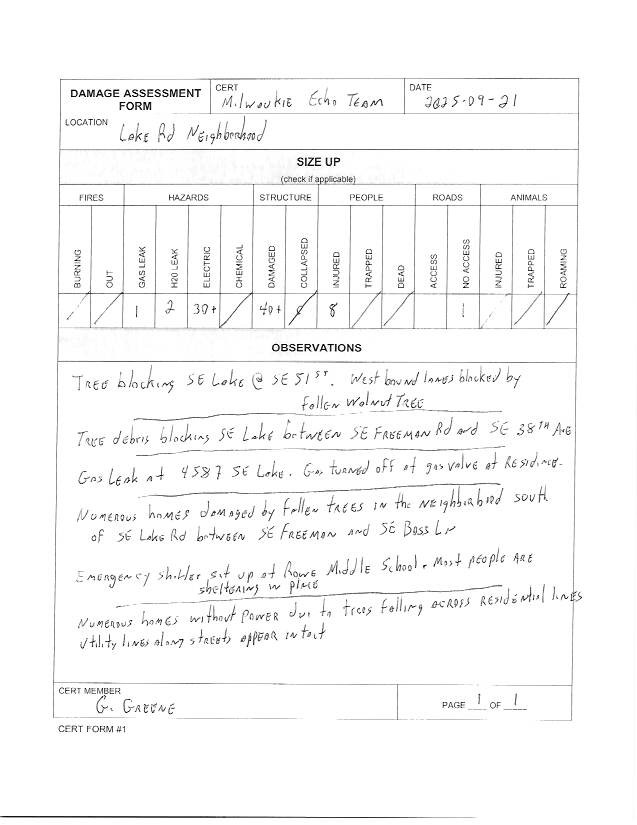 DAMAGE ASSESSMENT FORM
CERT
Milwoukie Echo Team
DATE
2025-09-21
LOCATION
Lake Rd Neighborhood
SIZE UP
(check if applicable)
FIRES HAZARDS STRUCTURE PEOPLE ROADS ANIMALS
BURNING OUT GAS LEAK H20 LEAK ELECTRIC CHEMICAL DAMAGED COLLAPSED INJURED TRAPPED DEAD ACCESS NO ACCESS INJURED TRAPPED ROAMING
/ / 1 2 30+ / 40+ / 8 / / 1 / / /
OBSERVATIONS
Tree blocking SE Lake @ SE 51st. West bound lanes blocked by
fallen Walnut Tree
Tree debris blocking SE Lake between SE Freeman Rd and SE 38th Ave
Gas Leak at 4587 SE Lake. Gas turned off at gas valve at Residence.
Numerous homes damaged by fallen trees in the neighborhood south
of SE Lake Rd between SE Freeman and SE Boss Ln
Emergency shelter set up at Rowe Middle School. Most people are
sheltering in place
Numerous homes without power due to trees falling across residential lines
Utility lines along streets appear intact
CERT MEMBER
G. Greene
PAGE 1 OF 1
CERT FORM #1